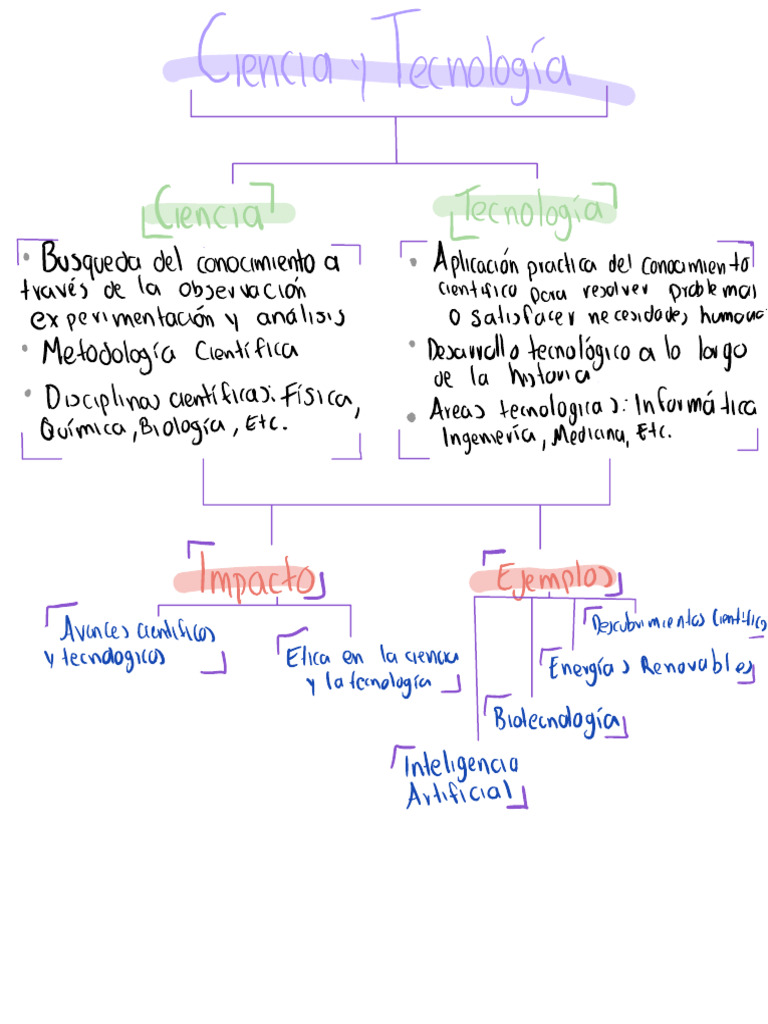 Ciencia y Tecnología
Ciencia
Tecnología
• Busqueda del conocimiento a
través de la observación
experimentación y análisis
• Metodología Científica
• Disciplinas científicas: Física,
Química, Biología, Etc.
• Aplicación practica del conocimiento
científico para resolver problemas
o satisfacer necesidades humanas
• Desarrollo tecnológico a lo largo
de la historia
• Areas tecnologicas: Informática
Ingeniería, Medicina, Etc.
Impacto
Ejemplos
Avances científicos
y tecnologicos
Etica en la ciencia
y la tecnología
Descubrimientos Científicos
Energías Renovables
Biotecnología
Inteligencia
Artificial